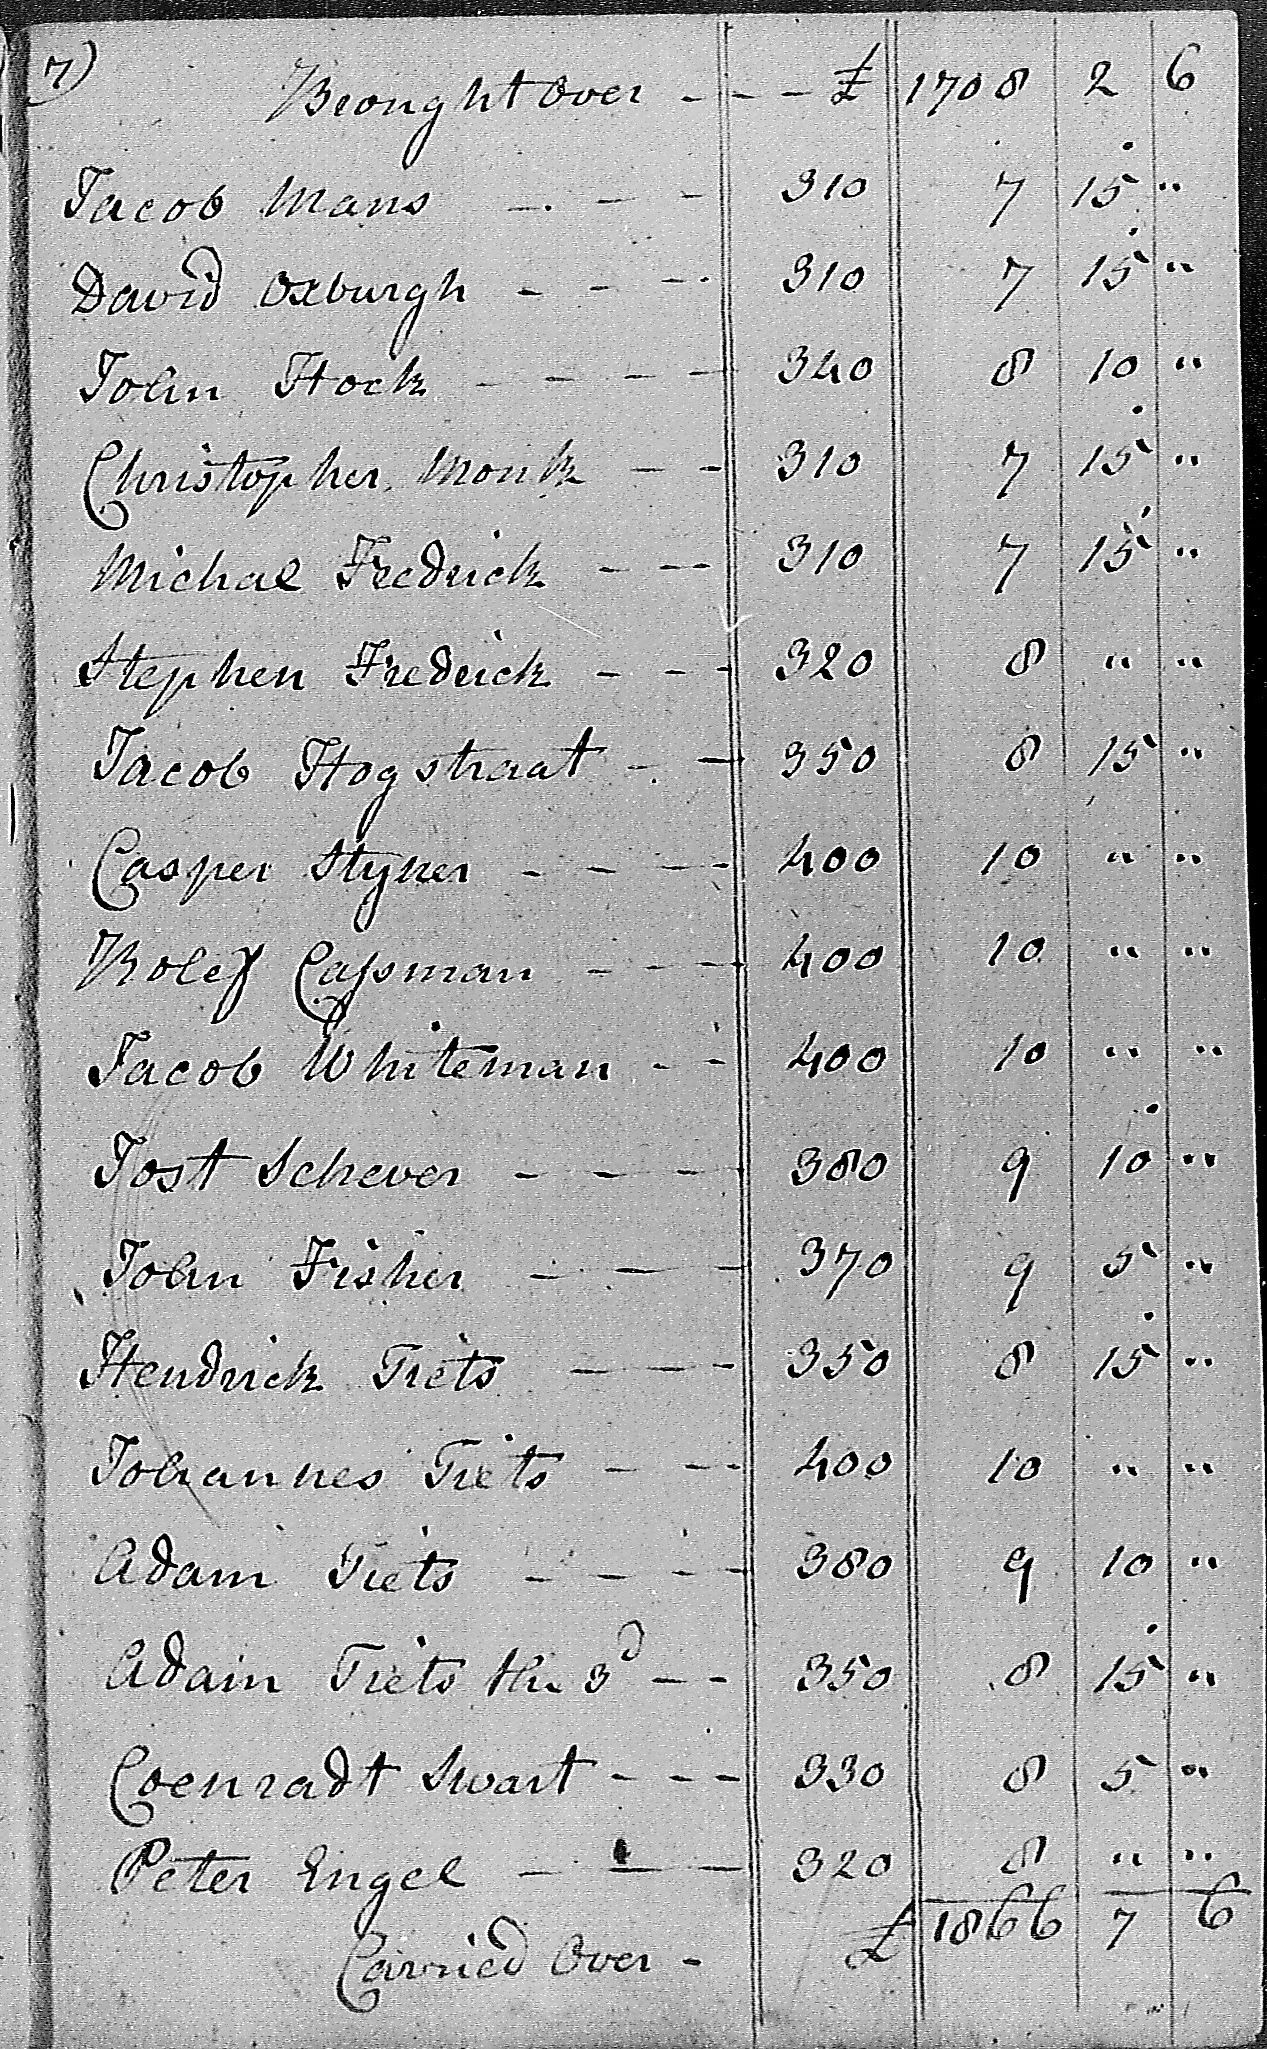 7)
Brought Over - - - - £ 1708 2 6
Jacob Mans - - - 310 7 15 "
David Oxburgh - - - 310 7 15 "
John Hock - - - - 340 8 10 "
Christopher Monk - - 310 7 15 "
Michal Fredrick - - - 310 7 15 "
Stephen Fredrick - - - 320 8 " "
Jacob Hogstraat - - 350 8 15 "
Casper Styner - - - - 400 10 " "
Rolef Cassman - - - 400 10 " "
Jacob Whiteman - - 400 10 " "
Jost Schever - - - - 380 9 10 "
John Fisher - - - 370 9 5 "
Hendrick Tiets - - - 350 8 15 "
Johannes Tiets - - - 400 10 " "
Adam Tiets - - - - 380 9 10 "
Adam Tiets the 3d - - 350 8 15 "
Coenradt Swart - - - 330 8 5 "
Peter Engel - - - 320 8 " "
Carried Over - £ 1866 7 6